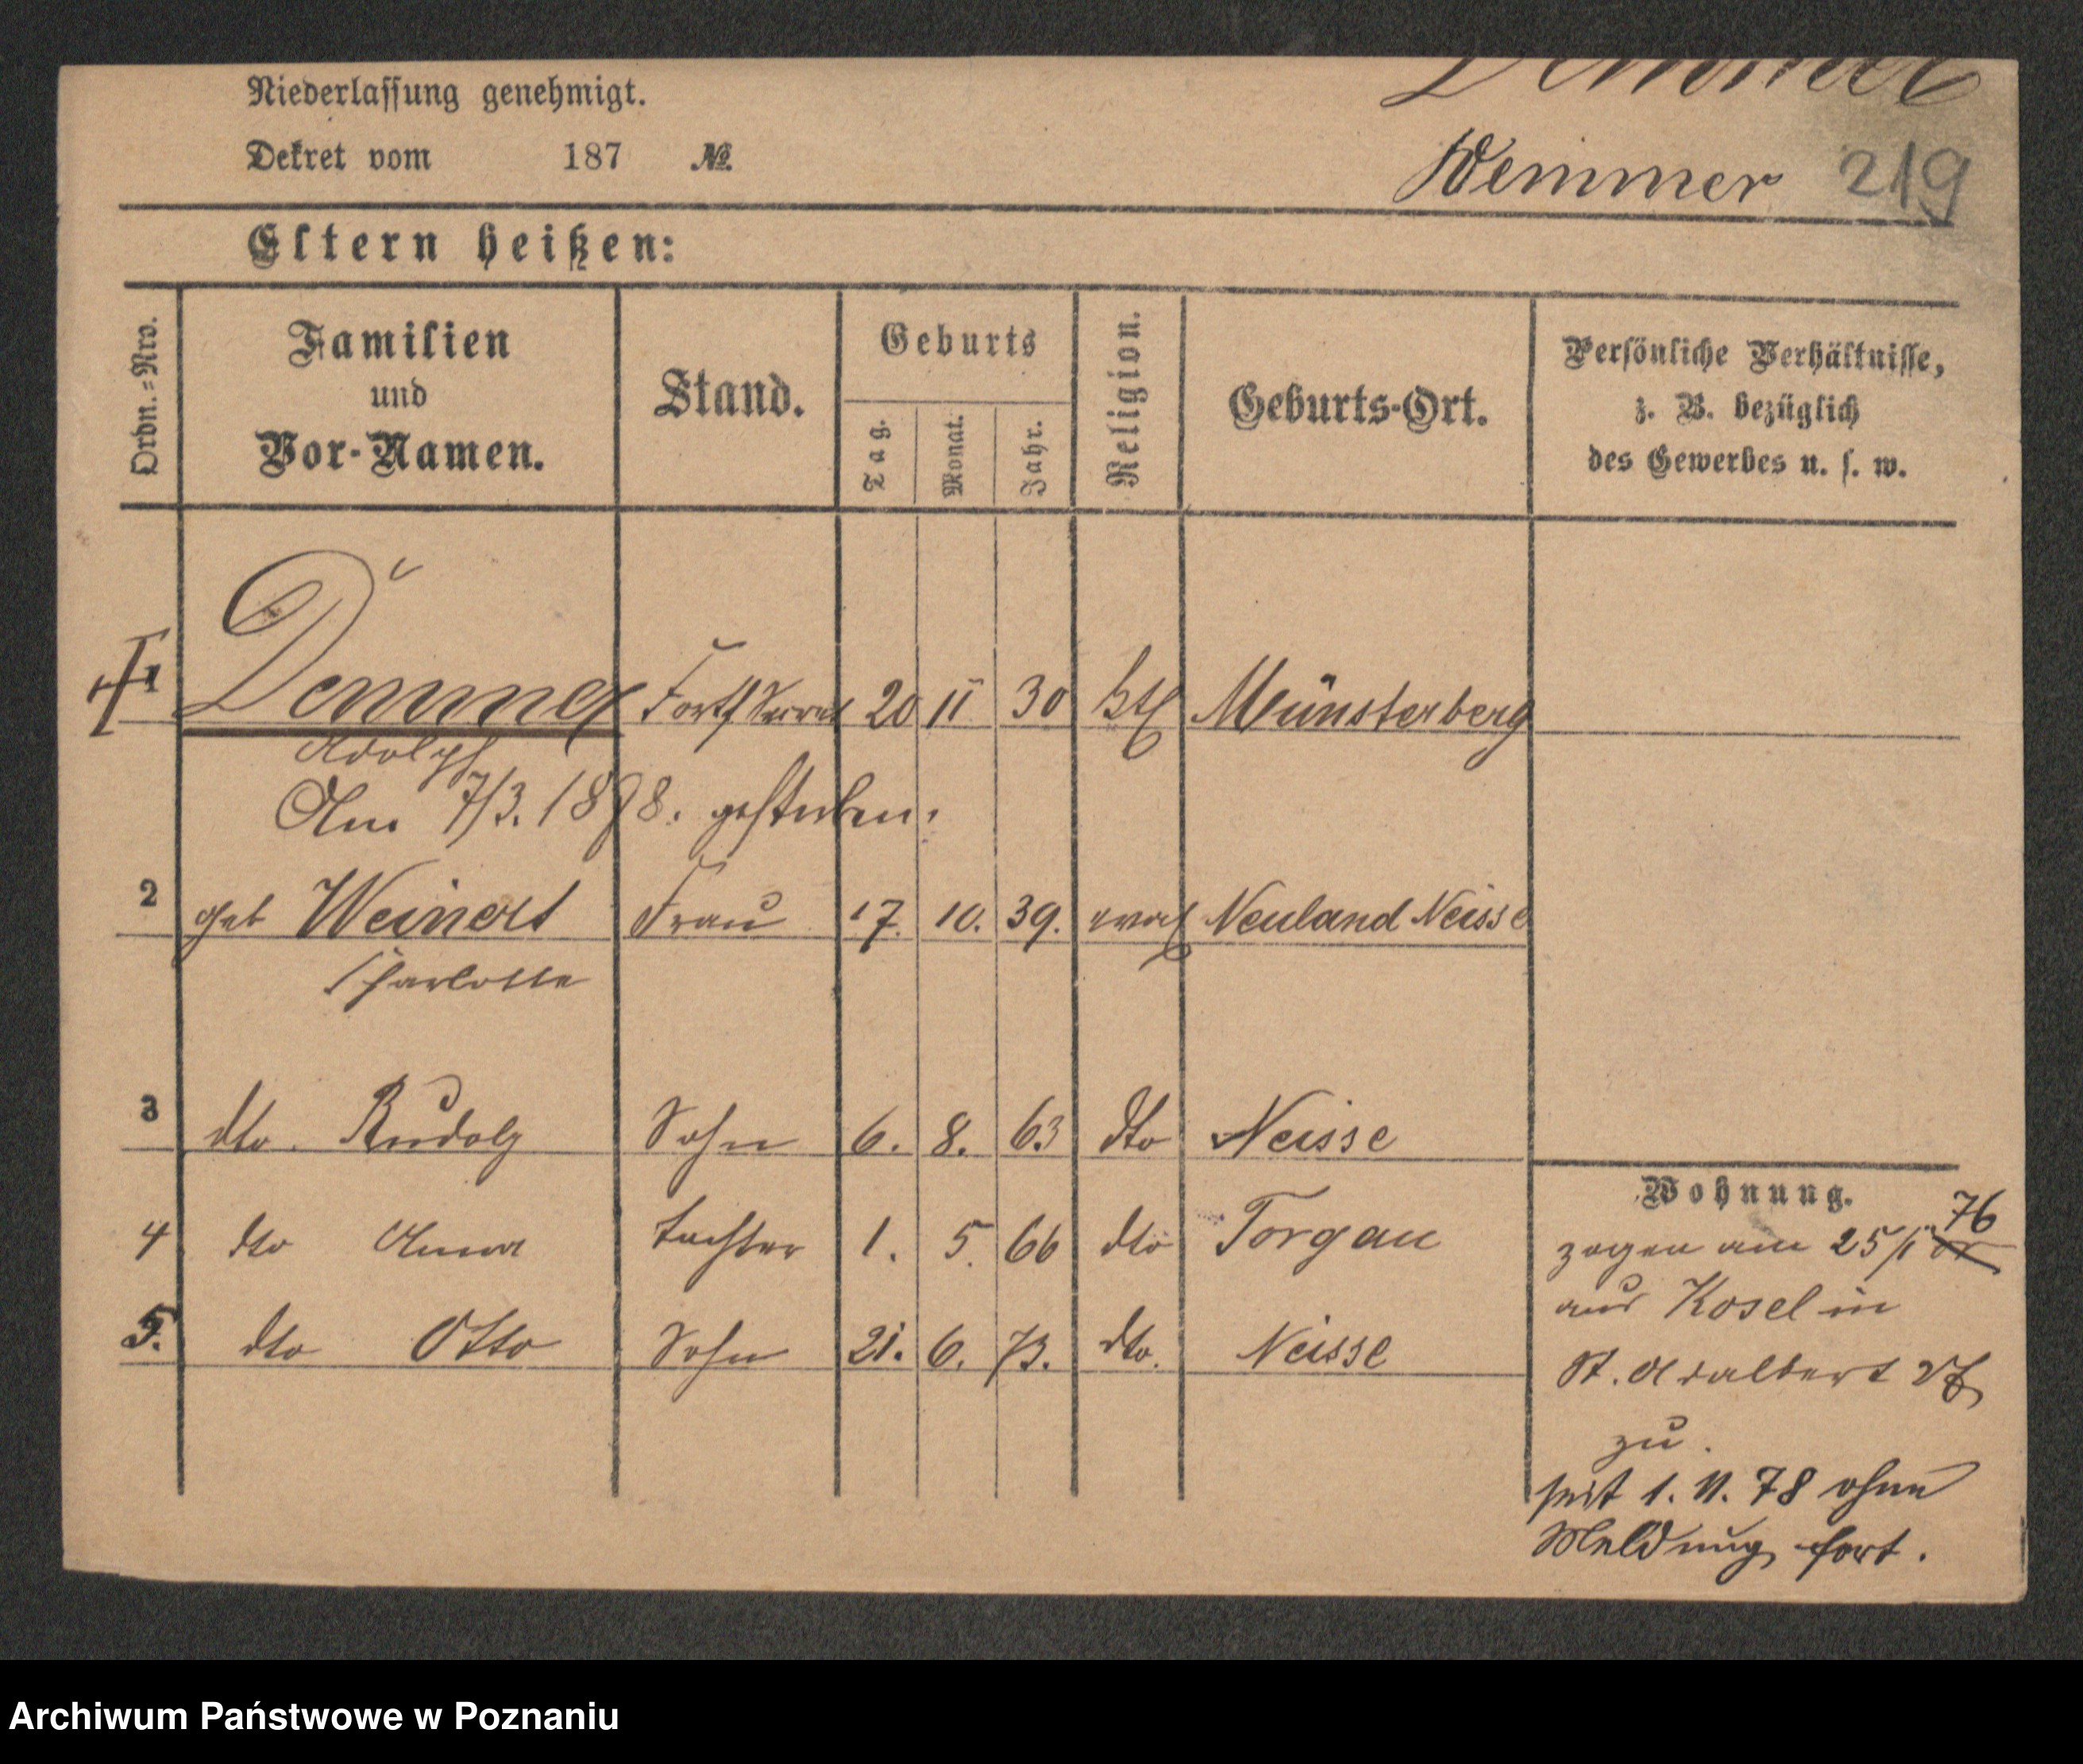 Niederlassung genehmigt.
Dekret vom 187 №.
Demmer
Wemmer 219
Eltern heißen:
Ordn.=Nro.
Familien
und
Vor-Namen.
Stand.
Geburts
Tag.
Monat.
Jahr.
Religion.
Geburts-Ort.
Persönliche Verhältnisse,
z. B. bezüglich
des Gewerbes u. s. w.
1 Demmer 20 11 30 ktl Münsterberg
Adolph
Am 7/3. 1898. gestorben.
2 geb Weinert Frau 17. 10. 39. evgl Neuland Neisse
Charlotte
3 dto. Rudolf Sohn 6. 8. 63 dto Neisse
4 dto Anna Tochter 1. 5. 66 dto Torgau
5. dto Otto Sohn 21. 6. 73. dto. Neisse
Wohnung.
zogen am 25/1 76
aus Kosel in
St. Adalbert
zu.
seit 1. 11. 78 ohne
Meldung fort.
Archiwum Państwowe w Poznaniu